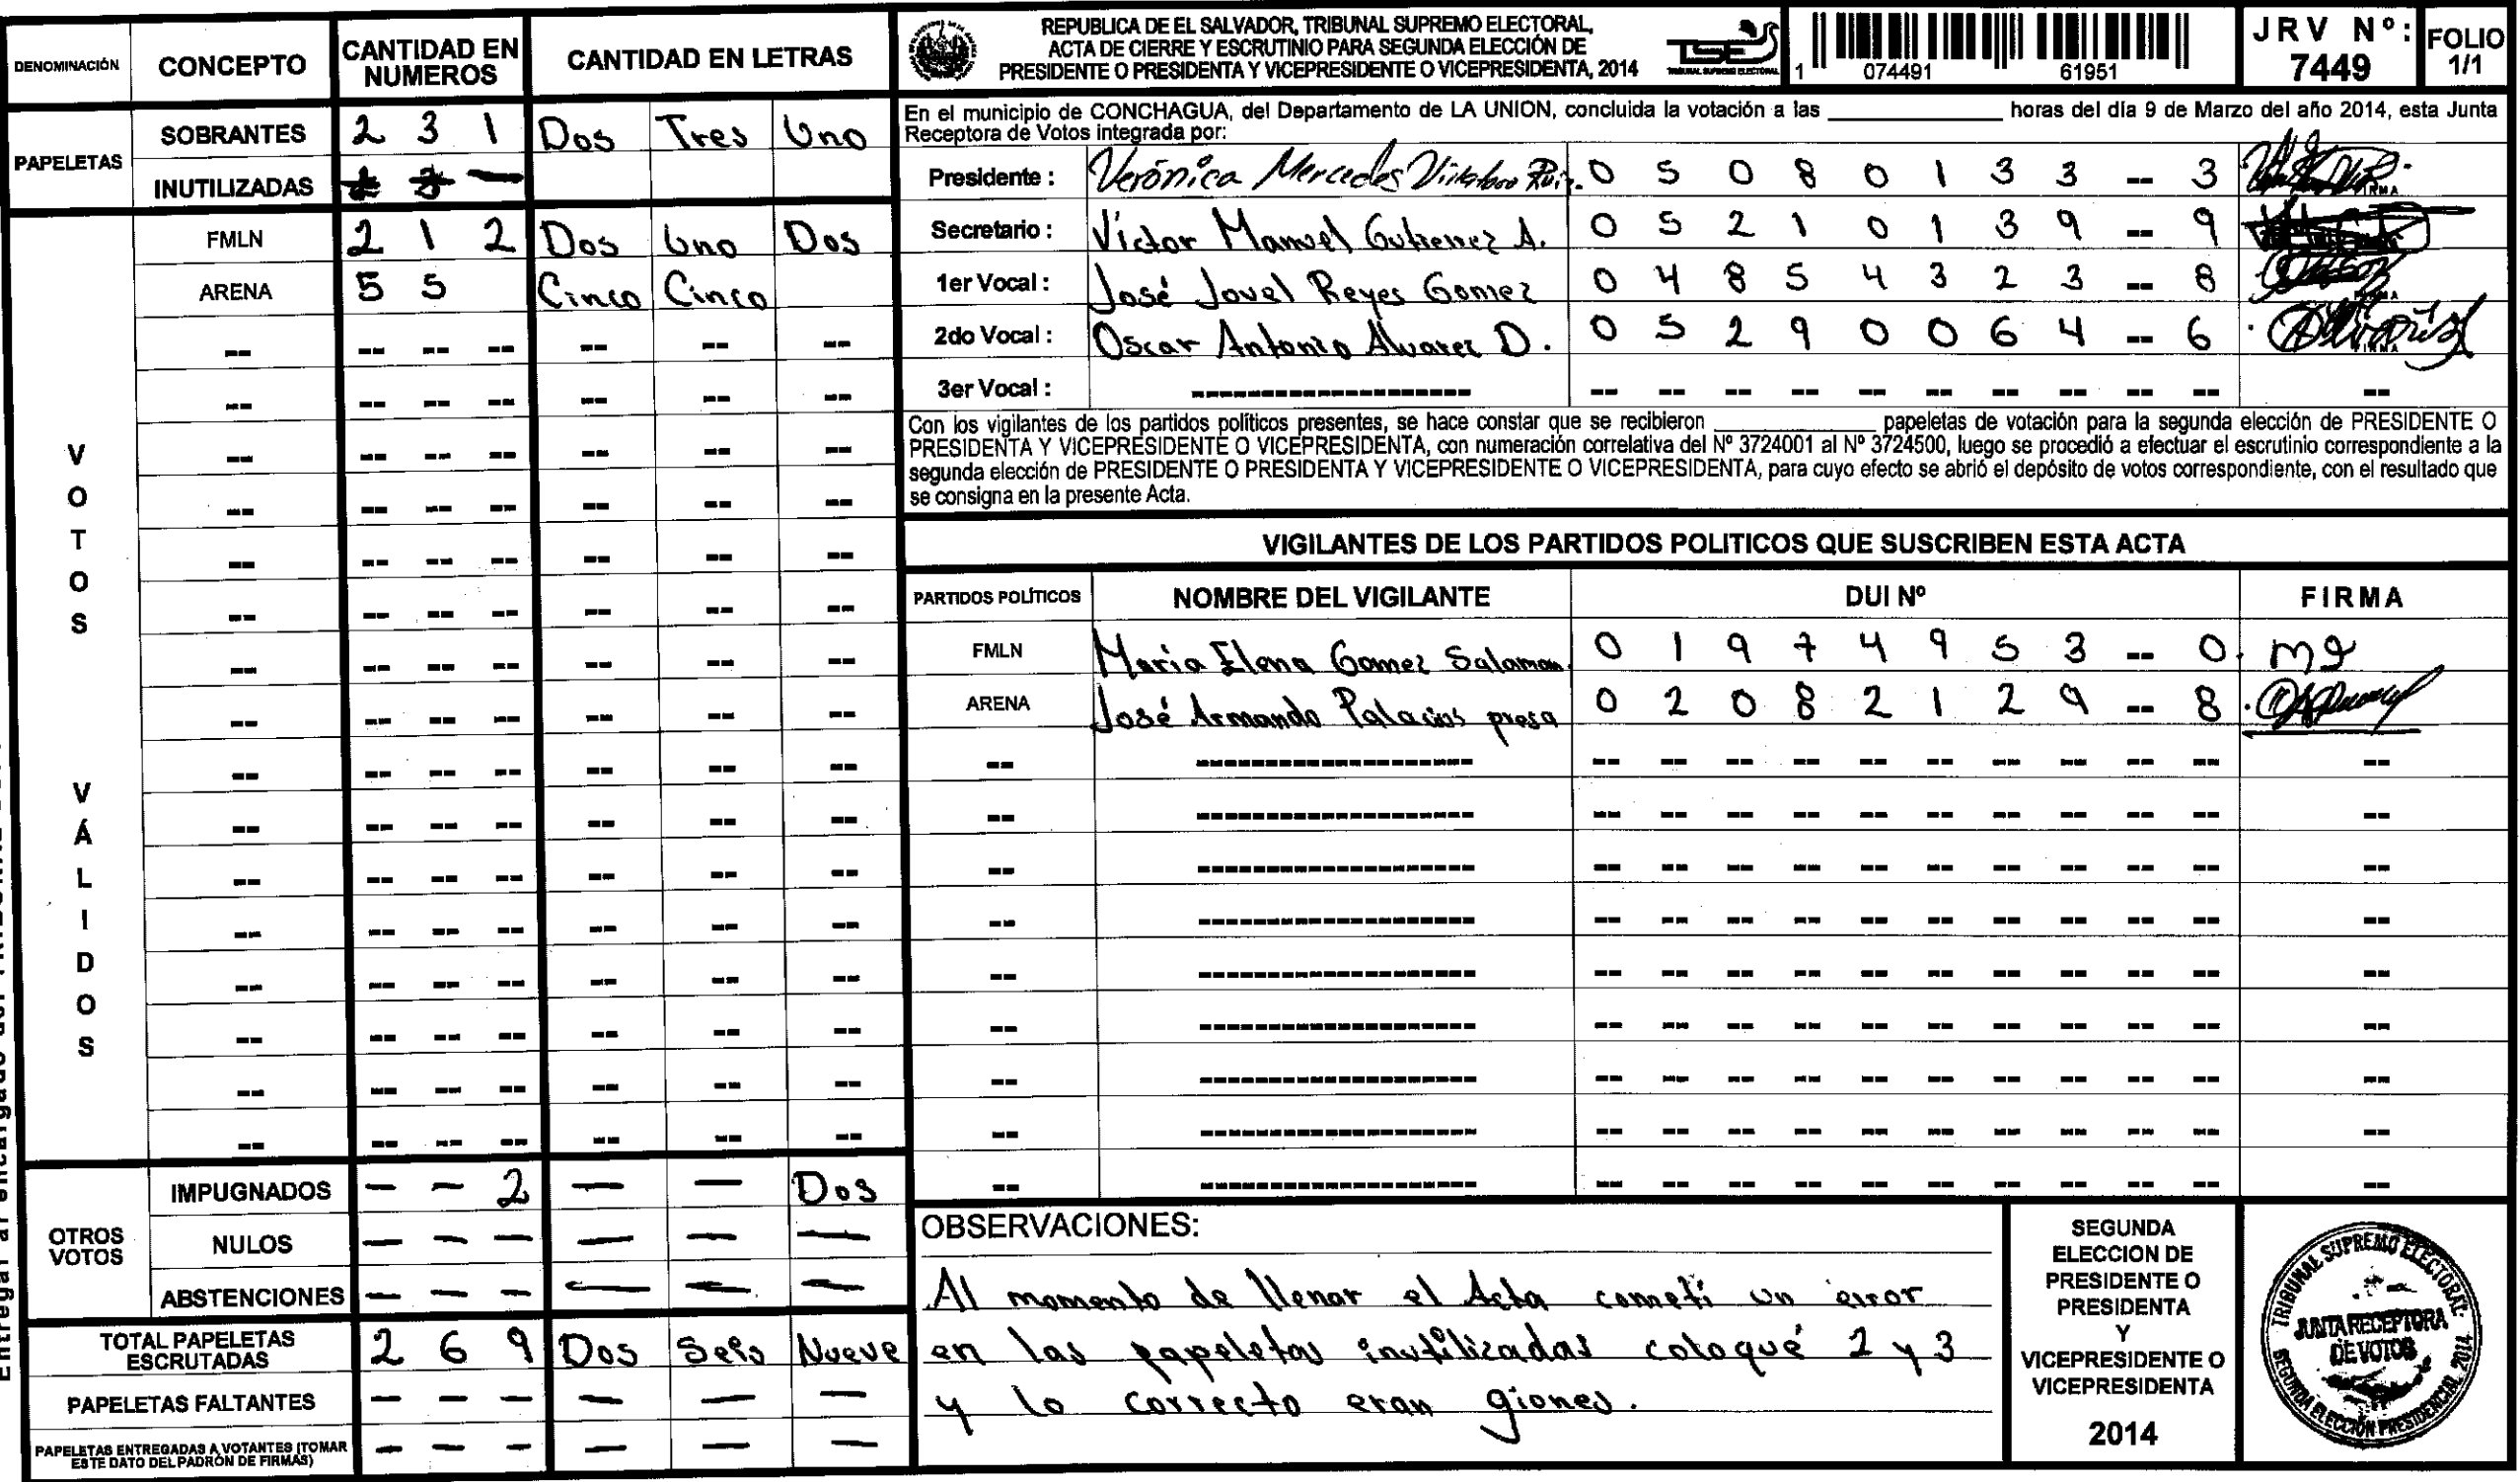 DENOMINACIÓN CONCEPTO CANTIDAD EN NUMEROS CANTIDAD EN LETRAS
PAPELETAS
SOBRANTES 2 3 1 Dos Tres Uno
INUTILIZADAS
VOTOS VÁLIDOS
FMLN 2 1 2 Dos Uno Dos
ARENA 5 5 Cinco Cinco
OTROS VOTOS
IMPUGNADOS — — 2 — — Dos
NULOS — — — — — —
ABSTENCIONES — — — — — —
TOTAL PAPELETAS ESCRUTADAS 2 6 9 Dos Seis Nueve
PAPELETAS FALTANTES — — — — — —
PAPELETAS ENTREGADAS A VOTANTES (TOMAR ESTE DATO DEL PADRÓN DE FIRMAS) — — — — — —
REPUBLICA DE EL SALVADOR, TRIBUNAL SUPREMO ELECTORAL,
ACTA DE CIERRE Y ESCRUTINIO PARA SEGUNDA ELECCIÓN DE
PRESIDENTE O PRESIDENTA Y VICEPRESIDENTE O VICEPRESIDENTA, 2014
TSE
TRIBUNAL SUPREMO ELECTORAL
1 074491 61951
JRV Nº: 7449
FOLIO 1/1
En el municipio de CONCHAGUA, del Departamento de LA UNION, concluida la votación a las ____ horas del día 9 de Marzo del año 2014, esta Junta
Receptora de Votos integrada por:
Presidente : Verónica Mercedes 0 5 0 8 0 1 3 3 -- 3
FIRMA
Secretario : Víctor Manuel Gutierrez A. 0 5 2 1 0 1 3 9 -- 9
1er Vocal : José Jovel Reyes Gomez 0 4 8 5 4 3 2 3 -- 8
2do Vocal : Oscar Antonio Alvarez D. 0 5 2 9 0 0 6 4 -- 6
3er Vocal :
Con los vigilantes de los partidos políticos presentes, se hace constar que se recibieron ____ papeletas de votación para la segunda elección de PRESIDENTE O
PRESIDENTA Y VICEPRESIDENTE O VICEPRESIDENTA, con numeración correlativa del Nº 3724001 al Nº 3724500, luego se procedió a efectuar el escrutinio correspondiente a la
segunda elección de PRESIDENTE O PRESIDENTA Y VICEPRESIDENTE O VICEPRESIDENTA, para cuyo efecto se abrió el depósito de votos correspondiente, con el resultado que
se consigna en la presente Acta.
VIGILANTES DE LOS PARTIDOS POLITICOS QUE SUSCRIBEN ESTA ACTA
PARTIDOS POLÍTICOS NOMBRE DEL VIGILANTE DUI Nº FIRMA
FMLN Maria Elena Gomez Salaman. 0 1 9 7 4 9 5 3 -- 0
ARENA José Armando Palacios presa 0 2 0 8 2 1 2 9 -- 8
OBSERVACIONES:
Al momento de llenar el Acta cometi un error
en las papeletas inutilizadas coloqué 2 y 3
y lo correcto eran giones.
SEGUNDA
ELECCION DE
PRESIDENTE O
PRESIDENTA
Y
VICEPRESIDENTE O
VICEPRESIDENTA
2014
TRIBUNAL SUPREMO ELECTORAL
JUNTA RECEPTORA
DE VOTOS
SEGUNDA ELECCIÓN PRESIDENCIAL 2014
Entregar al encargado del